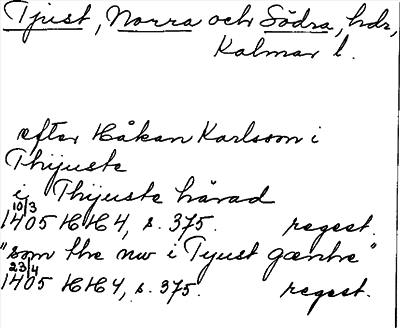 Tjust, Norra och Södra, hdr,
Kalmar l.
efter Håkan Karlsson i
Thijuste
ij Thijuste härad
10/3
1405 HH 4, s. 375. regest.
"som the nw i Tyust gænthe"
23/4
1405 HH 4, s. 375. regest.